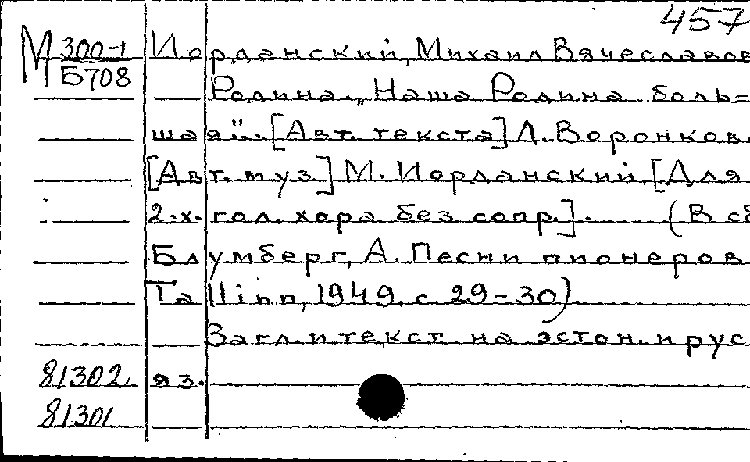 457
М 300-1 Иорданский, Михаил Вячеславов
Б708
Родина. „Наша Родина боль=
шая". [Авт. текста] Л. Воронков
[Авт. муз.] М. Иорданский [Для
2-х. гол. хора без сопр.]. (В сб
Блумберг, А. Песни пионеров
Tallinn, 1949. с. 29-30)
Загл. и текст на эстон. и рус
81302 яз.
81301